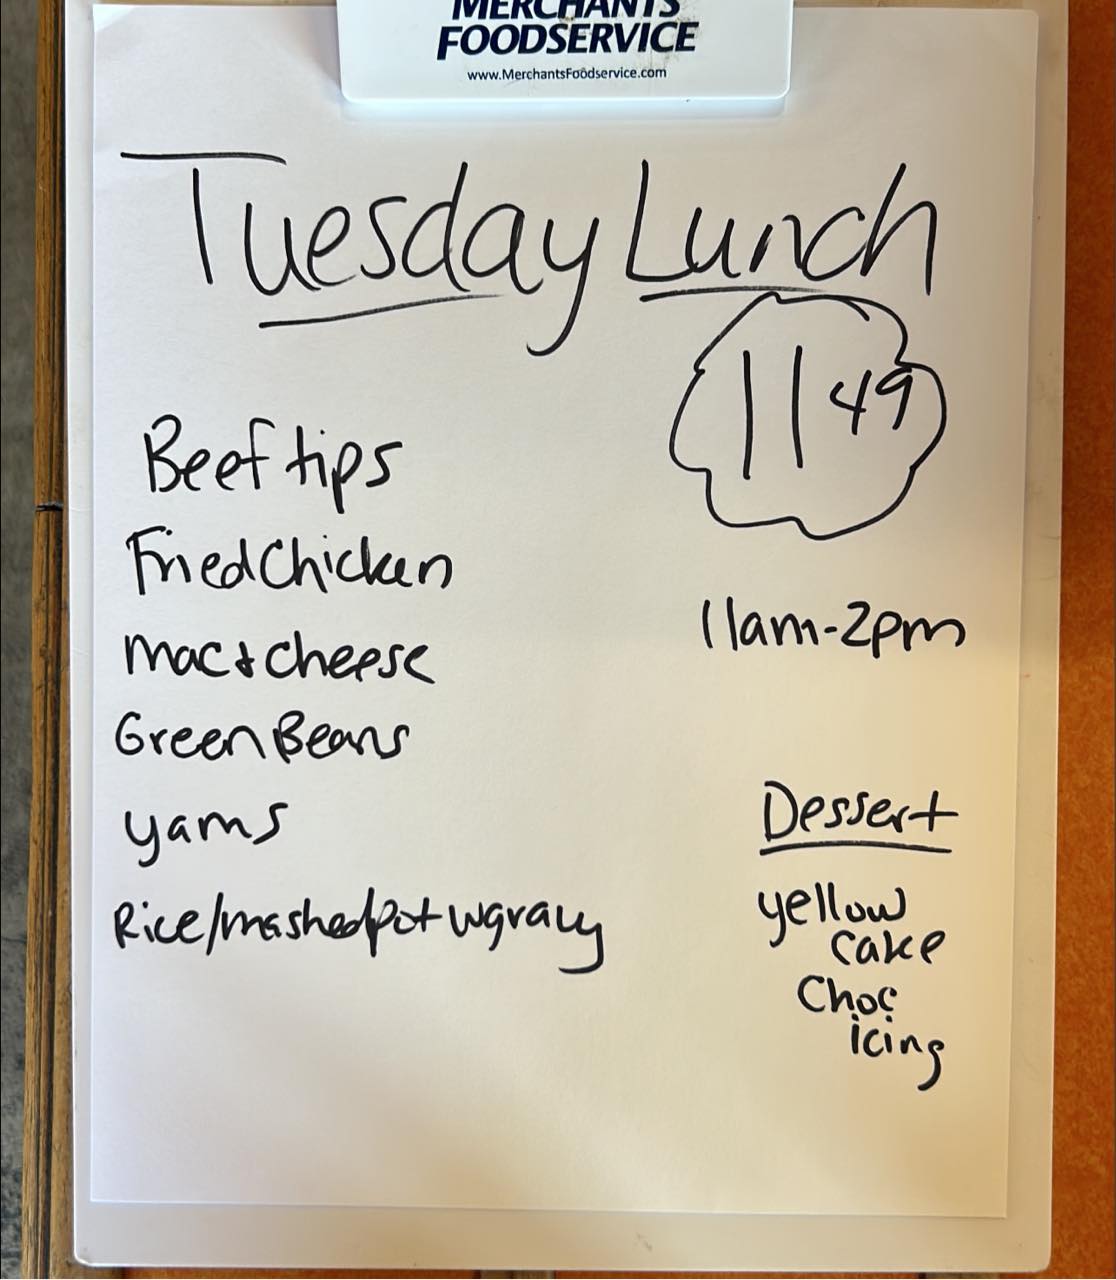 MERCHANTS
FOODSERVICE
www.MerchantsFoodservice.com
Tuesday Lunch
11 49
Beef tips
Fried Chicken
mac & cheese
Green Beans
yams
Rice/mashed pot w gravy
11am-2pm
Dessert
yellow
cake
Choc
icing